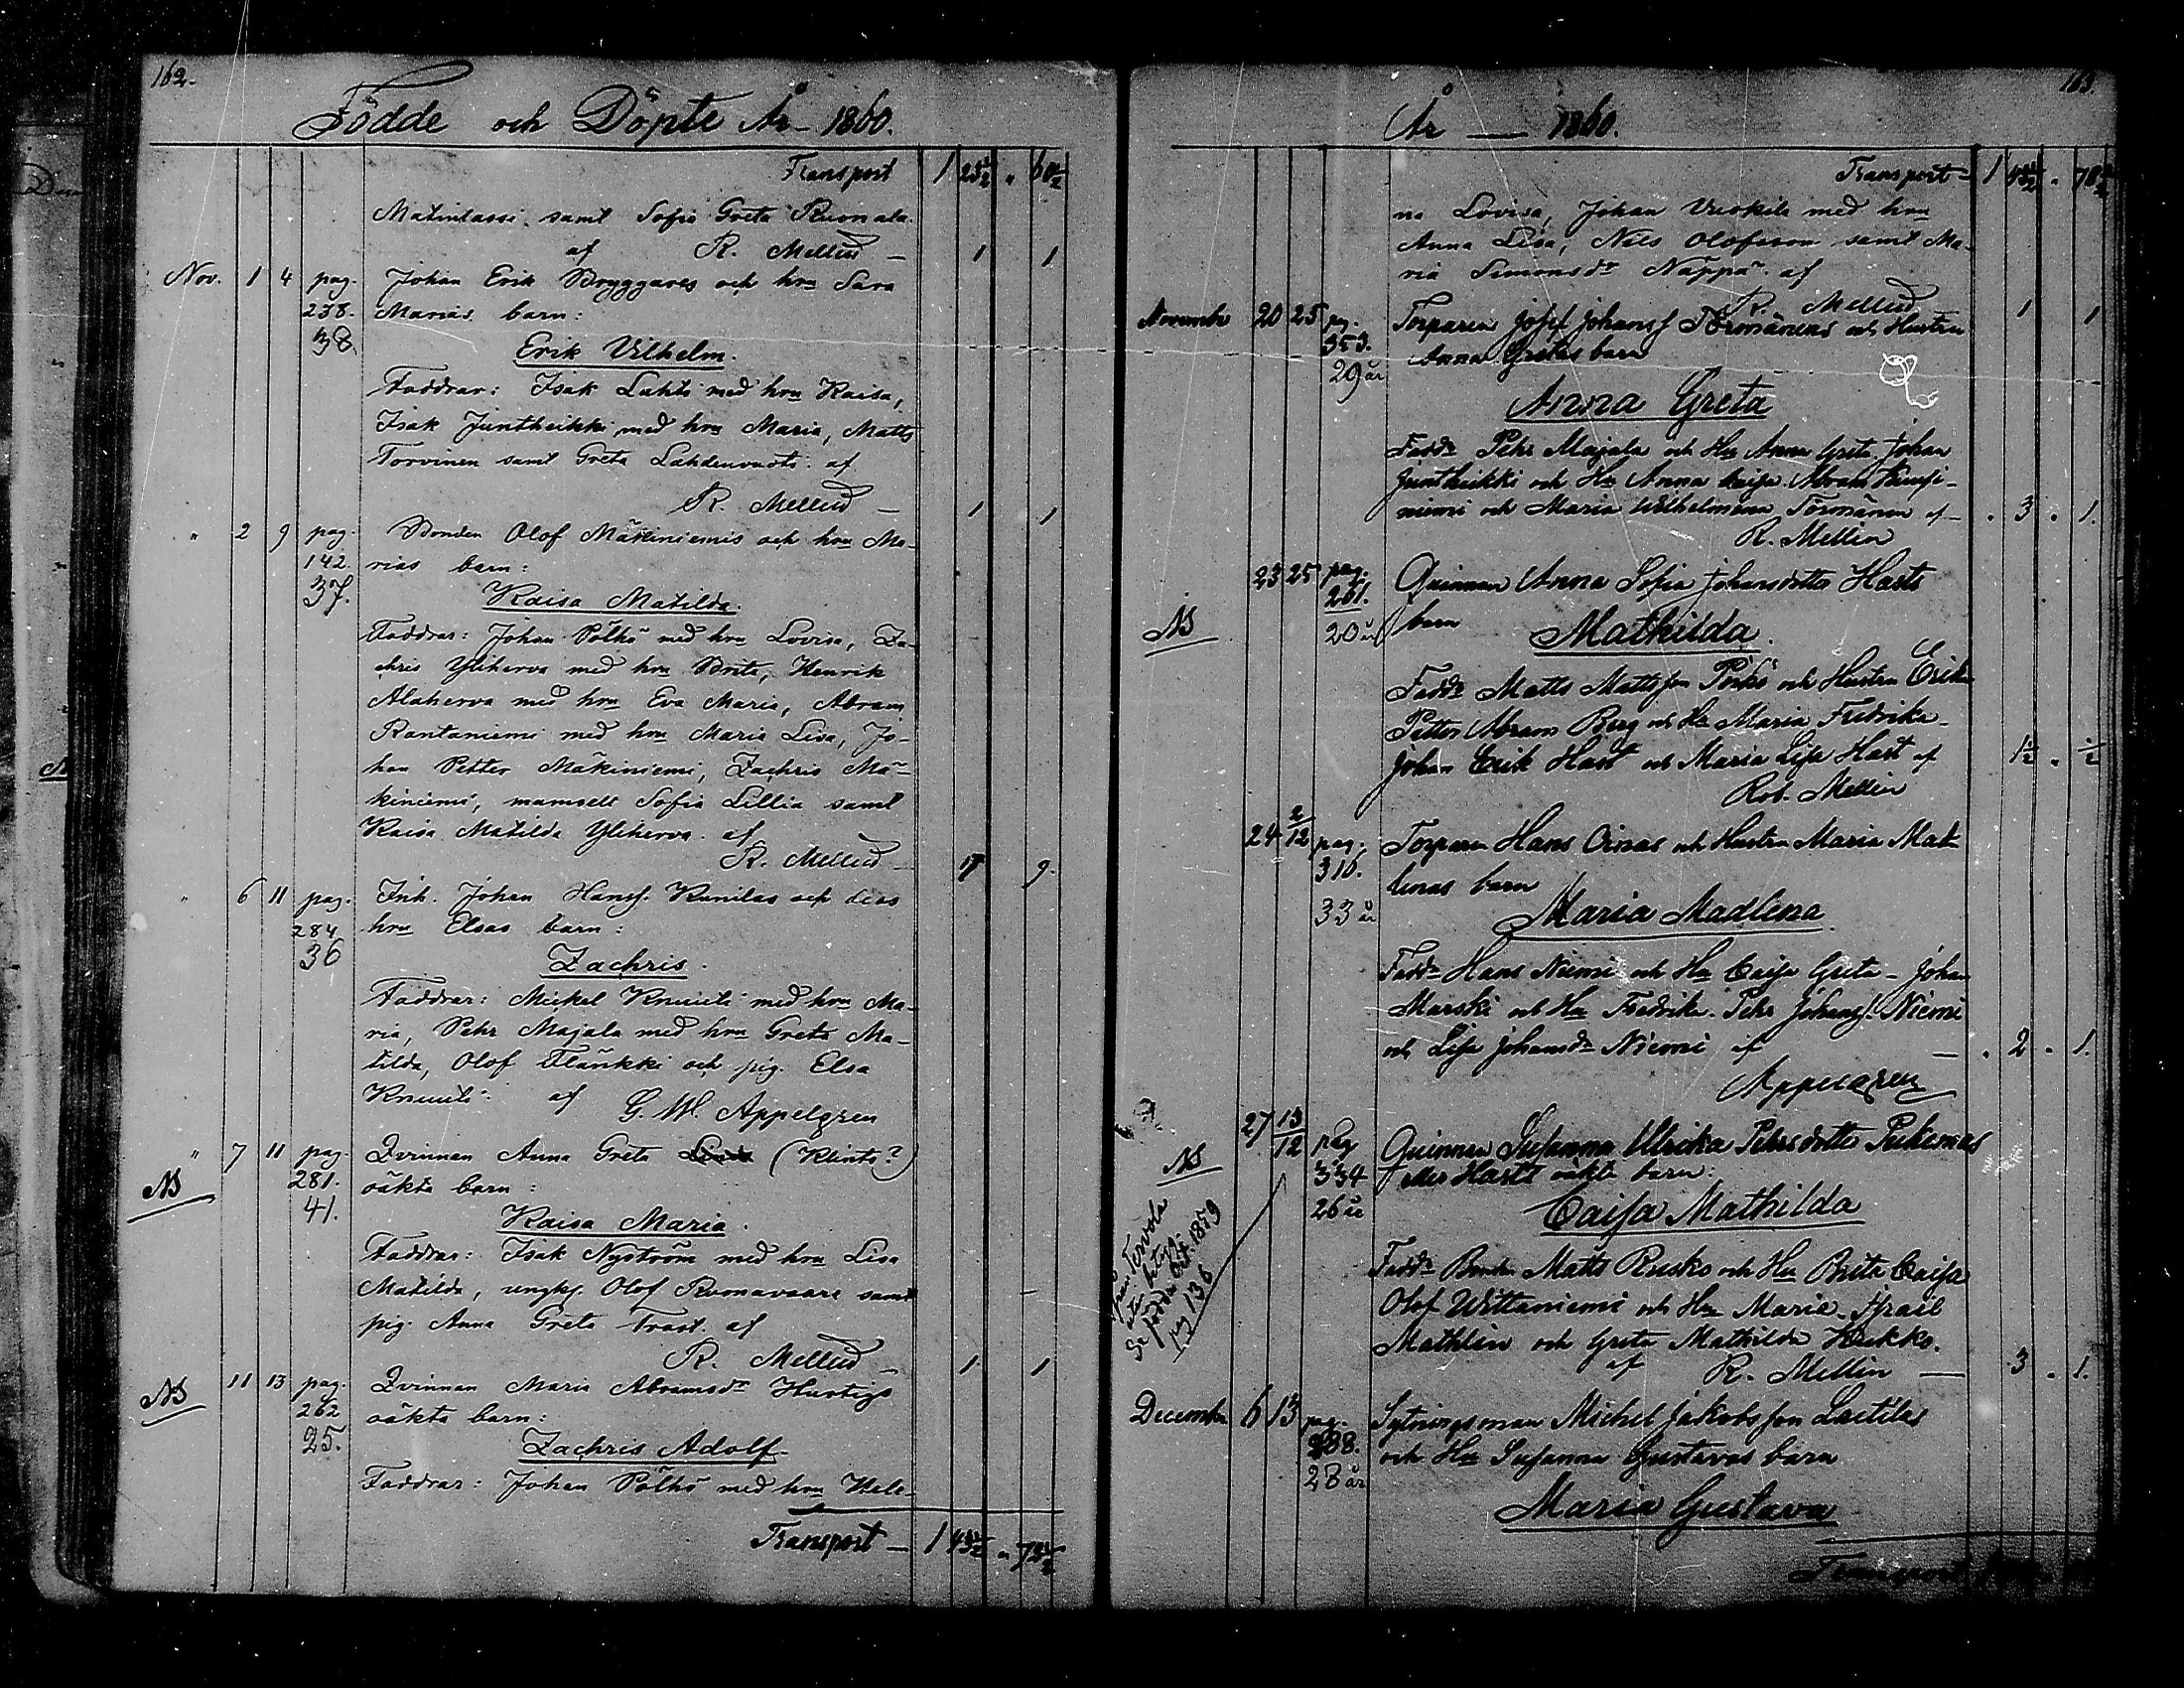 162.
Födde och Döpte År 1860.
Transport 1 23½ " 60½
Matinlassi samt Sofia Greta Ruonala
af R. Mellin — 1 1
Nov. 1 4 pag. Johan Erik Bryggares och hru Sara
238. Marias barn:
38 Erik Vilhelm.
Faddrar: Isak Lahti med hru Kaisa,
Isak Juntheikki med hru Maria, Matts
Torvinen samt Greta Lahdenvuoti af
R. Mellin — 1 1
" 2 9 pag. Bonden Olof Mäkiniemis och hru Ma-
142. rias barn:
37. Kaisa Matilda.
Faddrar: Johan Pölhö med hru Lovisa, Za-
chris Yliherva med hru Brita, Henrik
Alaherva med hru Eva Maria, Abram
Rantaniemi med hru Maria Lisa, Jo-
han Petter Mäkiniemi, Zachris Mä-
kiniemi, mamsell Sofia Lillia samt
Kaisa Matilda Yliherva af
R. Mellin — 9.
" 6 11 pag. Inh. Johan Hanss. Kunilas och dess
284 hru Elsas barn:
36 Zachris.
Faddrar: Mickel Knuuti med hru Ma-
ria, Pehr Majala med hru Greta Ma-
tilda, Olof Flänkki och pig. Elsa
Knuuti af G. W. Appelgren
" 7 11 pag. Qvinnan Anna Greta (Klints?)
NB 281. oäkta barn:
41. Kaisa Maria.
Faddrar: Isak Nyström med hru Lisa
Matilda, ungk. Olof Ruonavaara samt
pig. Anna Greta Trast af
R. Mellin — 1 1
11 13 pag. Qvinnan Maria Abramsdr Hurtigs
NB 262 oäkta barn:
25. Zachris Adolf.
Faddrar: Johan Pölhö med hru Hele-
Transport — 1 43½ " 73½
163.
År — 1860.
Transport — 1 43½ " 73½
na Lovisa, Johan Vuokila med hru
Anna Lisa, Nils Olofsson samt Ma-
ria Simonsdr Näppä af
R. Mellin 1 1
November 20 25 pg. Torparen Josef Johanss Törmänens och Hustru
353. Anna Gretas barn
29 år Anna Greta
Faddr Pehr Majala och Hu Anna Greta, Johan
Juntheikki och Hu Anna Caisa, Abram
niemi och Maria Wilhelmina Törmänen af — " 3 " 1.
R. Mellin
23 25 pag. Quinnan Anna Sofia Johansdotter Harts
261. barn
NB 20 år Mathilda.
Faddr Matts Mattsson Pörhö och Hustru Erika
Petter Abram Berg och Hu Maria Fredrika —
Johan Erik Hast och Maria Lisa Hast af 1½ " ½
Rob. Mellin
24 2/12 pag. Torparen Hans Oinas och Hustru Maria Mad-
316. lenas barn
33 år Maria Madlena
Faddr Hans Niemi och Hu Caisa Greta — Johan
Marski och Hu Fredrika. Pehr Johanss. Niemi
och Lisa Johansdr Niemi af — " 2 " 1.
Appelgren
27 13/12 pag Quinnan Susanna Ulrika Pehrsdotter Peikemas
NB 334 eller Harts oäkta barn:
26 år Caisa Mathilda
från Tervola
Se födda Oct. 1859
pag 136
Faddr Bonden Matts Rusko och Hu Brita Caisa
Olof Wittaniemi och Hu Maria. Israil
Mathlin och Greta Mathilda Kukko.
af R. Mellin — 3 " 1.
December 6 13 pag. Sytningsman Michel Jakobsson Laitilas
288. och Hu Susanna Gustavas barn
28 år Maria Gustava
Transport